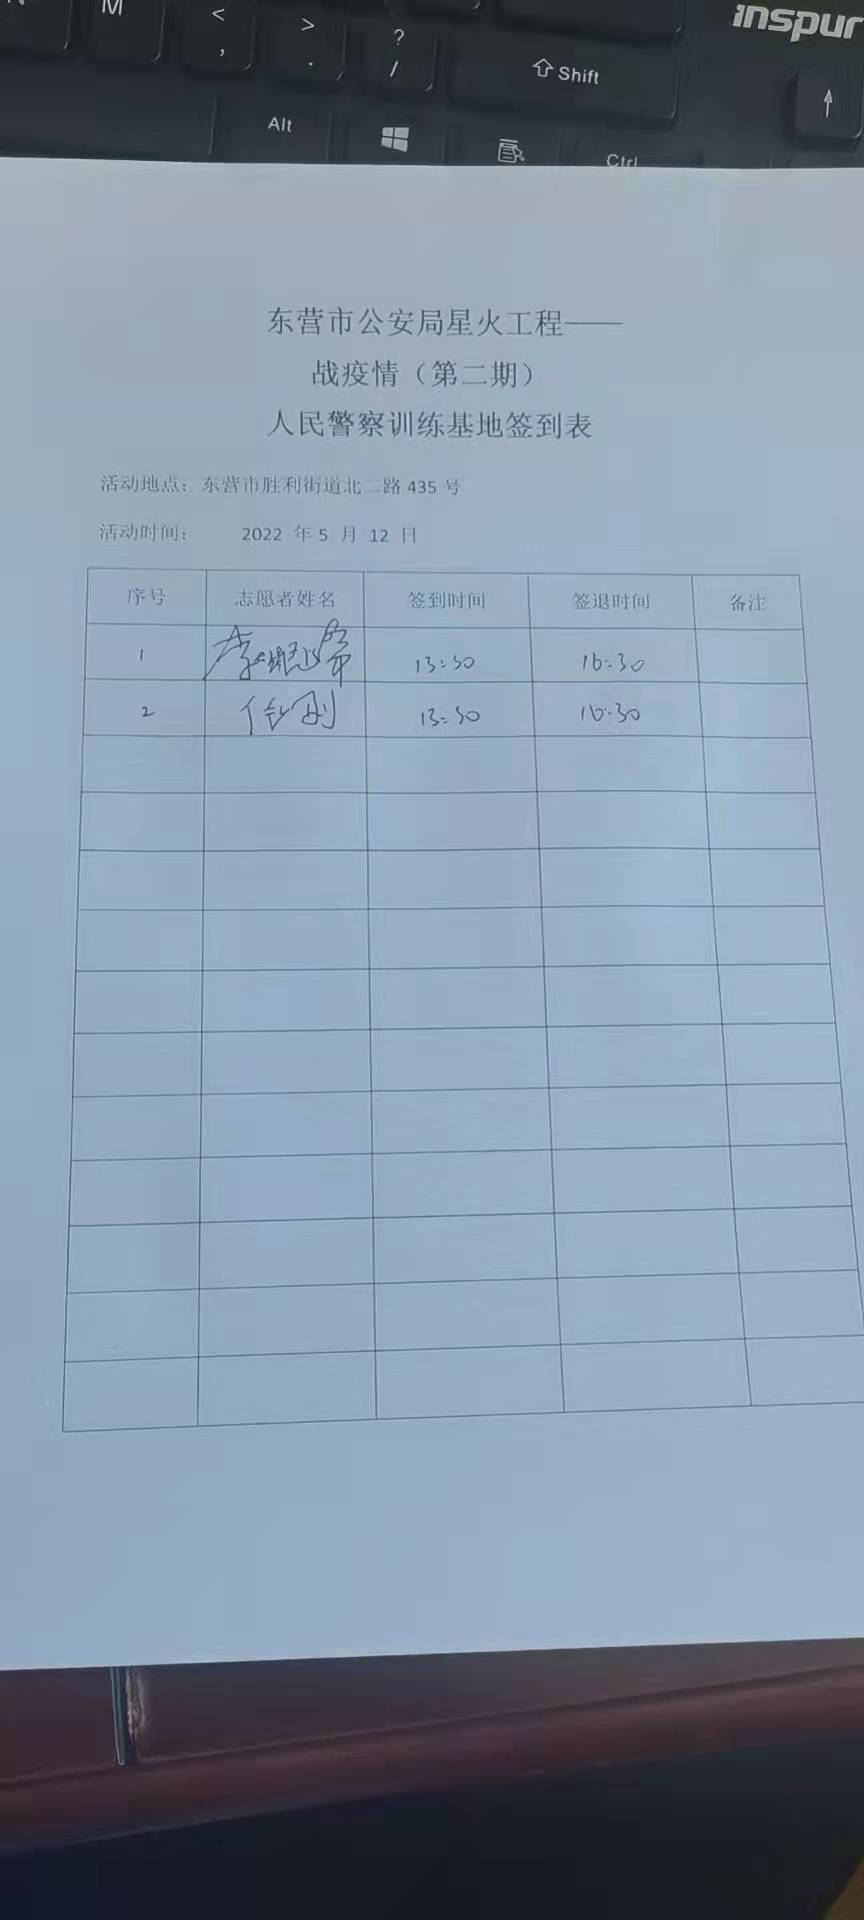 M < , > . ? / ⇧ Shift
inspur
Alt Ctrl
东营市公安局星火工程——
战疫情（第二期）
人民警察训练基地签到表
活动地点：东营市胜利街道北二路 435 号
活动时间： 2022 年 5 月 12 日
序号 志愿者姓名 签到时间 签退时间 备注
1 13:30 16:30
2 13:30 16:30